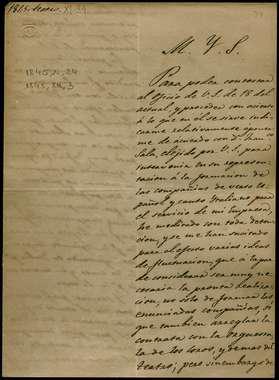 1845. Enero. XI. 24
M. Y. S.
1845, XI, 24
1845, XI, 3
Para poder contestar
al oficio de V. S. de 18 del
actual y proceder con acierto
á lo que en él se sirve indi-
carme relativamente aponer-
me de acuerdo con D. Juan
Sala, elejido por V. S. para
intervenir en su represen-
tacion á la formacion de
las compañias de verso es-
pañol y canto Italiano para
el servicio de mi empresa,
he meditado con toda deten-
cion, y se me han sucedido
para el efecto varias ideas
de fluctuacion, que á la par
de considerar sea muy ne-
cesaria la pronta realiza-
cion, no solo de formar las
enunciadas compañias, si
que tambien arreglar la
contrata con la Orquesta,
la de los coros, y demas del
teatro; pero sin embargo de